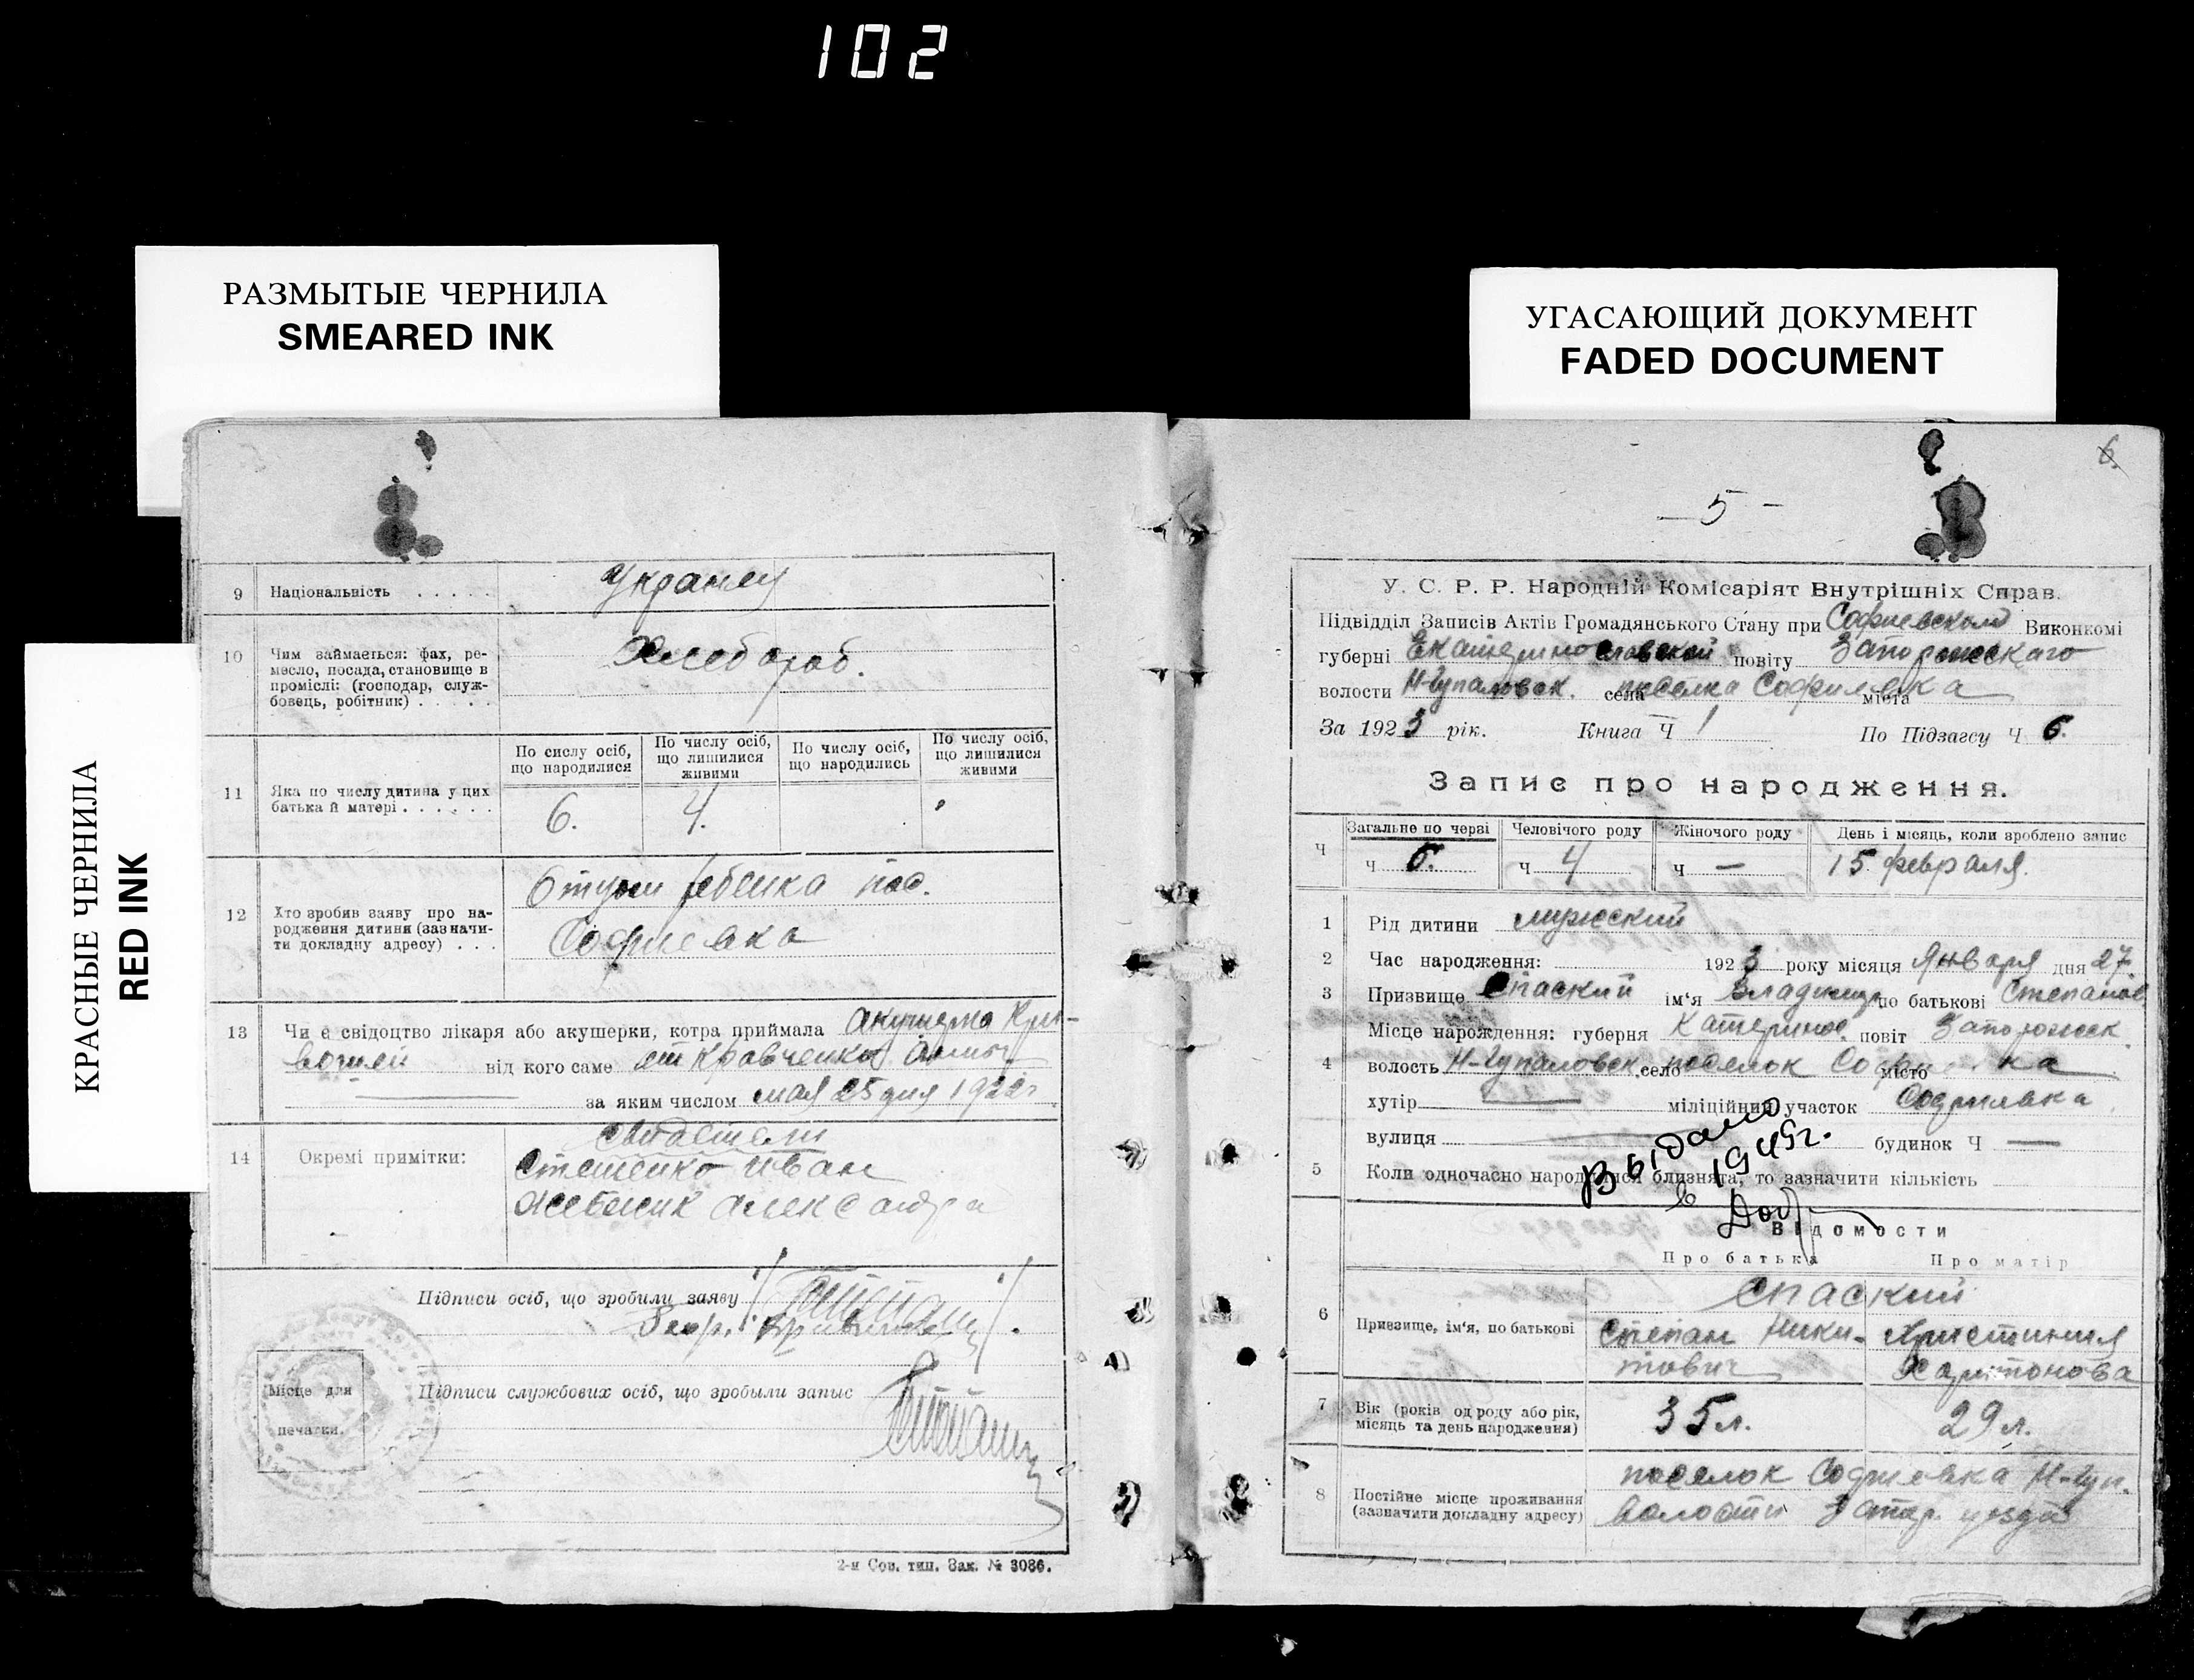 102
РАЗМЫТЫЕ ЧЕРНИЛА
SMEARED INK
УГАСАЮЩИЙ ДОКУМЕНТ
FADED DOCUMENT
КРАСНЫЕ ЧЕРНИЛА
RED INK
9 Національність . . . . .
10 Чим займається: фах, ре-
месло, посада, становище в
промислі: (господар, служ-
бовець, робітник) . . . . .
Хлебороб.
11 Яка по числу дитина у цих
батька й матері . . . . . .
По сислу осіб,
що народилися
По числу осіб,
що лишилися
живими
По числу осіб,
що народились
По числу осіб,
що лишилися
живими
6. 4.
12 Хто зробив заяву про на-
родження дитини (зазначи-
ти докладну адресу) . . .
ребенка пос.
Софиевка
13 Чи є свідоцтво лікаря або акушерки, котра приймала
від кого саме от Кравченко
за яким числом мая 25 дня 1922г
14 Окремі примітки:
Свидетели
Стешенко Иван
Александра
Підписи осіб, що зробили заяву
Місце для
печатки.
Підписи службових осіб, що зробыли запыс
2-я Сов. тип. Зак. № 3086.
6.
— 5 —
У. С. Р. Р. Народній Комісаріят Внутрішніх Справ.
Підвідділ Записів Актів Громадянського Стану при Софиевском Виконкомі
губерні Екатеринославской повіту Запорожскаго
волости Н-Гупаловск. села поселка Софиевка міста
За 1923 рік. Книга Ч 1 По Підзагсу Ч 6.
Запис про народження.
Ч
Загальне по черзі Человічого роду Жіночого роду День і місяць, коли зроблено запис
ч 6. Ч 4 ч — 15 февраля.
1 Рід дитини мужский
2 Час народження: 1923 року місяця Января дня 27
3 Призвище Спаский ім'я Владимир по батькові Степанов
4 Місце нарождення: губерня Катеринос. повіт Запорожск.
волость Н-Гупаловск. село поселок Софиевка місто
хутір — міліційний участок Софиевка
вулиця — будинок Ч —
5 Коли одночасно народилися близнята, то зазначити кількість
Выдано
в 1945г.
Відомости
Про батька Про матір
6 Призвище, ім'я, по батькові
Спаский
Степан Ники- Христиния
тович Харитонова
7 Вік (років од роду або рік,
місяць та день народження)
35 л. 29 л.
8 Постійне місце проживання
(зазначити докладну адресу)
поселок Софиевка Н-Гуп.
волости Запор. уезда